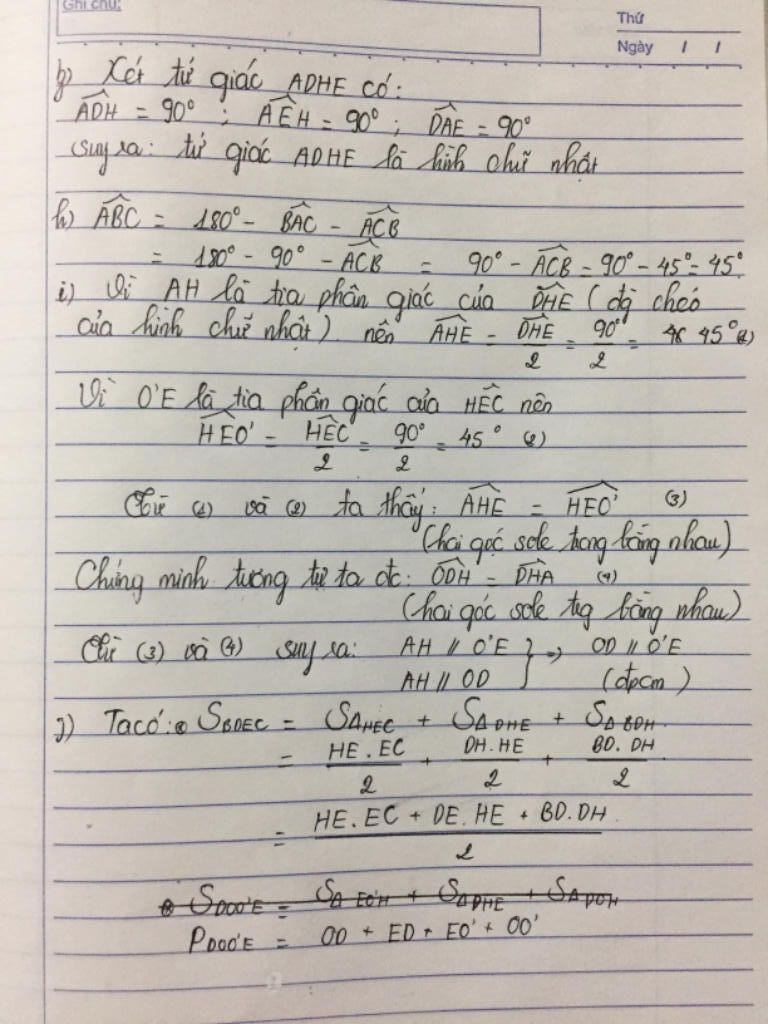 Ghi chú:
Thứ
Ngày / /
g) Xét tứ giác ADHE có:
ADH = 90° ; AEH = 90° ; DAE = 90°
suy ra: tứ giác ADHE là hình chữ nhật
h) ABC = 180° - BAC - ACB
= 180° - 90° - ACB = 90° - ACB = 90° - 45° = 45°
i) Vì AH là tia phân giác của DHE (đg chéo
của hình chữ nhật) nên AHE = DHE/2 = 90°/2 = 45° (1)
Vì O'E là tia phân giác của HEC nên
HEO' = HEC/2 = 90°/2 = 45° (2)
Từ (1) và (2) ta thấy: AHE = HEO' (3)
(hai góc sole trong bằng nhau)
Chứng minh tương tự ta đc: ODH = DHA (4)
(hai góc sole trg bằng nhau)
Từ (3) và (4) suy ra: AH // O'E } => OD // O'E
AH // OD (đpcm)
j) Ta có: S BDEC = SΔHEC + SΔDHE + SΔBDH
= HE.EC/2 + DH.HE/2 + BD.DH/2
= HE.EC + DE.HE + BD.DH/2
S DOO'E = SΔEO'H + SΔDHE + SΔDOH
P DOO'E = OD + ED + EO' + OO'